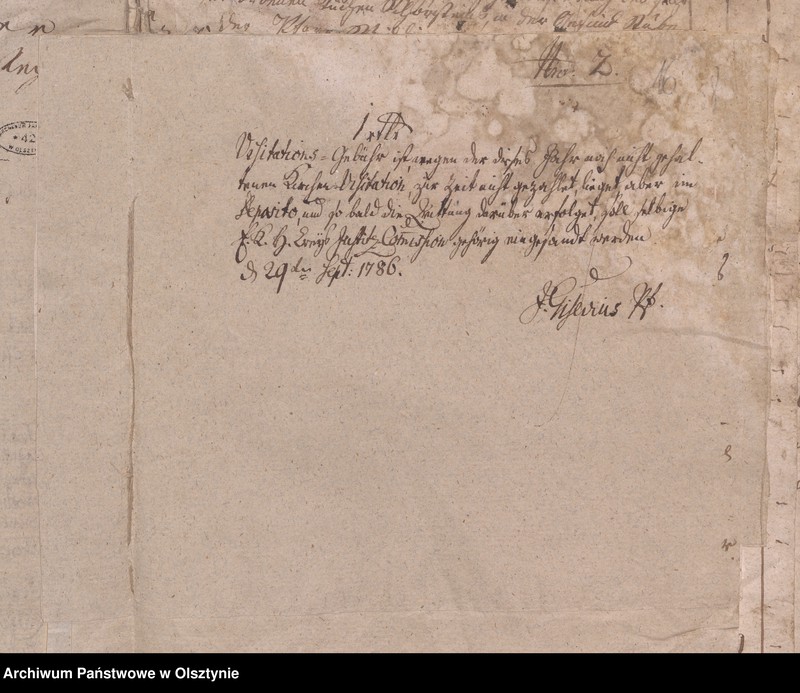 Nro. 2.
1 rthr
Visitations-Gebühr ist, wegen der dieses Jahr noch nicht gehal-
tenen Kirchen-Visitation, zur Zeit nicht gezahlet, lieget aber im
Deposito, und so bald die Quittung darüber erfolget, soll selbige
E. K. H. Creys Justitz-Comission gehörig eingesandt werden
d 29ten Sept: 1786.
Gisevius Pf.
Archiwum Państwowe w Olsztynie